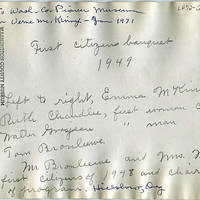 To Wash. Co. Pioneer Museum
Verne McKinny - Jan 1971
First citizens banquet
1949
Left to right, Emma McKin
Ruth Chandlee, first woman c
Walter " man
Tom Bronleewe
Mr. Bronleewe and Mrs. M
first citizens of 1948 and chair
of program. Hillsboro, Ore
WASHINGTON COUNTY MUSEUM